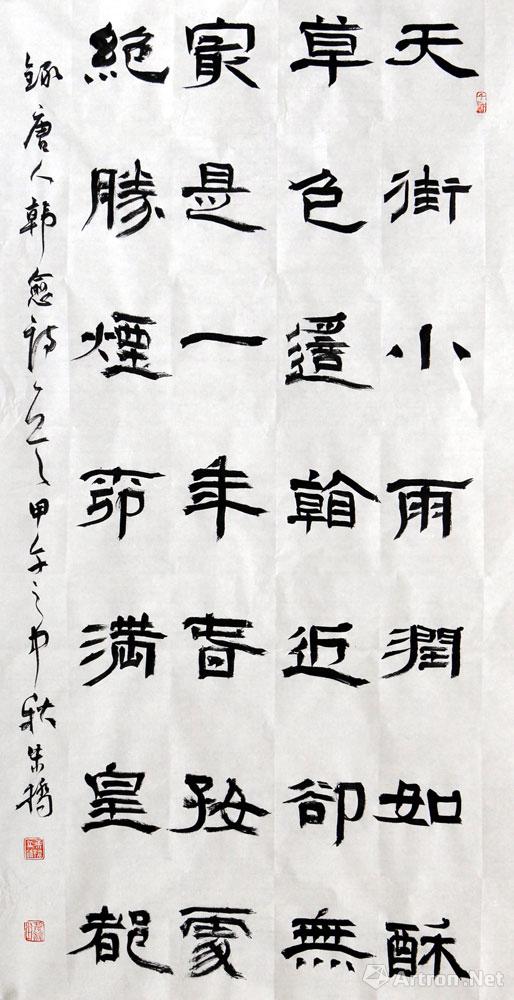 天街小雨潤如酥
草色遥看近卻無
最是一年春好處
絕勝煙柳滿皇都
錄唐人韓愈詩一首甲午之中秋朱橋
Artron.Net